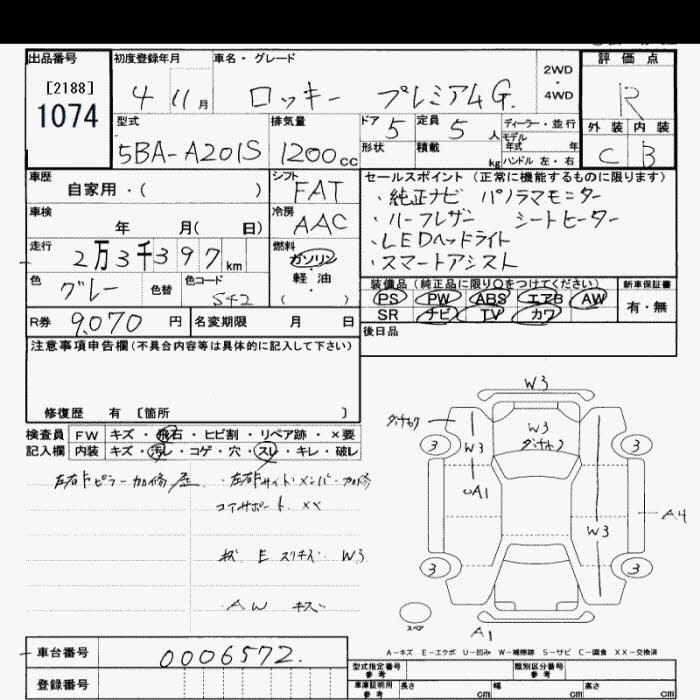 出品番号
[2188]
1074
初度登録年月
4 11月
車名・グレード
ロッキー プレミアムG
2WD
・
4WD
評価点
R
外装 内装
C B
型式
5BA-A201S
排気量
1200cc
ドア 5
定員 5人
形状
積載 kg
ディーラー・並行
モデル年式 年
ハンドル 左・右
車歴
自家用・( )
シフト
FAT
セールスポイント (正常に機能するものに限ります)
・純正ナビ パノラマモニター
・ハーフレザー シートヒーター
・LEDヘッドライト
・スマートアシスト
車検
年 月( 日)
冷房
AAC
走行
2万3千397km
燃料
ガソリン
軽・油
( )
色
グレー
色替
色コード
S42
装備品 (純正品に限り○をつけてください)
PS PW ABS エアB AW
SR ナビ TV カワ
新車保証書
有・無
R券 9,070円
名変期限 月 日
後日品
注意事項申告欄(不具合内容等は具体的に記入して下さい)
修復歴 有 [箇所 ]
検査員
記入欄
FW キズ・飛石・ヒビ割・リペア跡・×要
内装 キズ・汚レ・コゲ・穴・スレ・キレ・破レ
左右Fピラー加修
・左右Fサイドメンバー加修
コアサポート ××
キズ E スリキズ W3
AW キズ
W3
W3
W3
A1
W3
A4
3
3
3
3
スペア
A1
A-キズ E-エクボ U-凹み W-補修跡 S-サビ C-腐食 XX-交換済
車台番号
0006572
登録番号
型式指定番号
参考
類別区分番号
参考
車庫証明用
参考
長さ cm
幅 cm
高さ cm